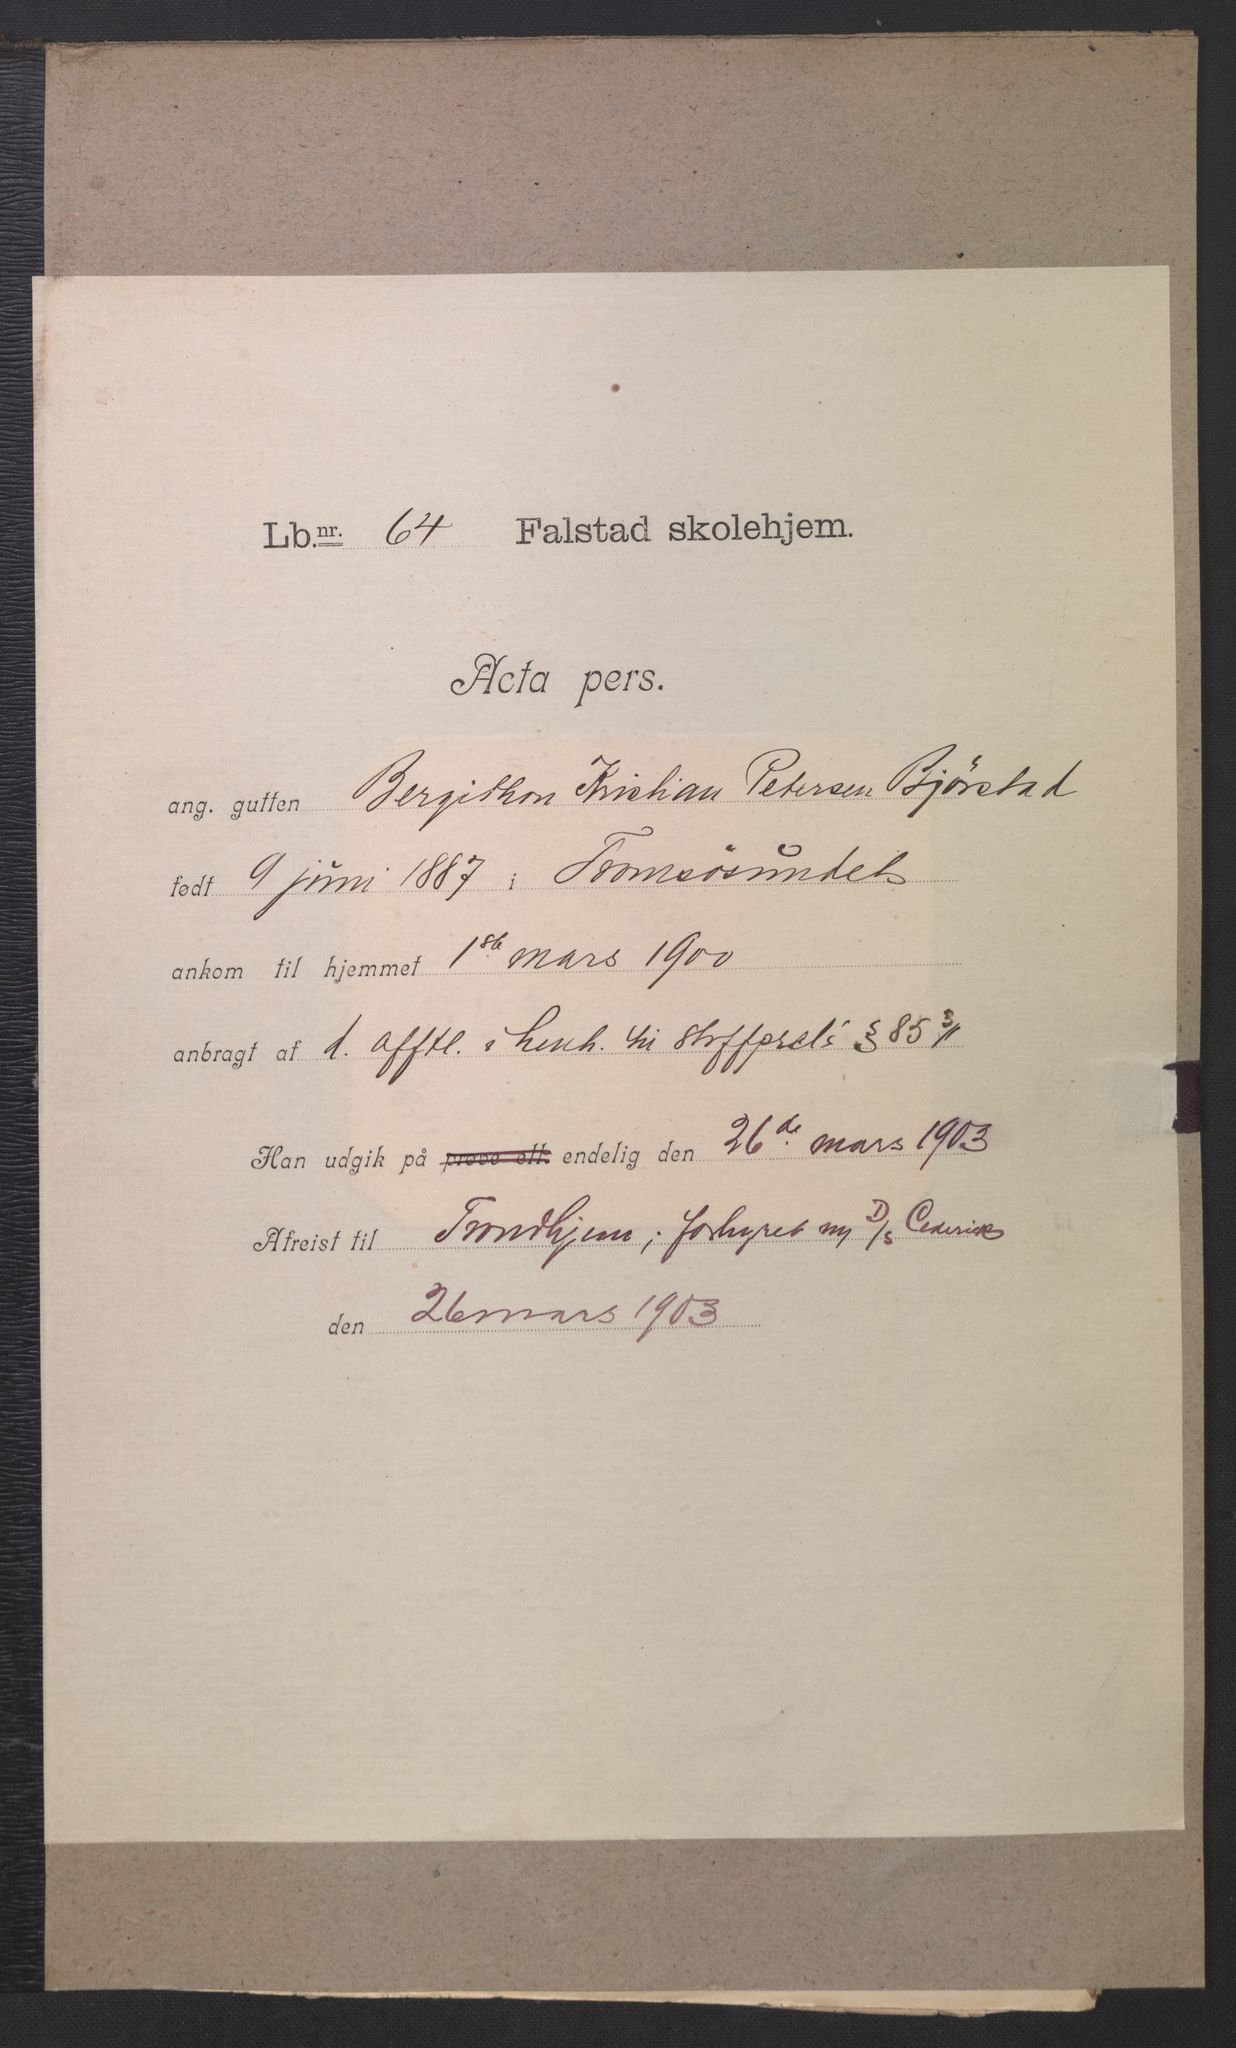 Lb.nr. 64 Falstad skolehjem.
Acta pers.
ang. gutten Bergithon Kristian Petersen Bjørstad
født 9 juni 1887 i Tromsøsundet
ankom til hjemmet 1ste mars 1900
anbragt af d. offtl. i henh. til strffprcls § 85
Han udgik på prøve ell. endelig den 26de mars 1903
Afreist til Trondhjem; forhyret m/ D/s
den 26 mars 1903